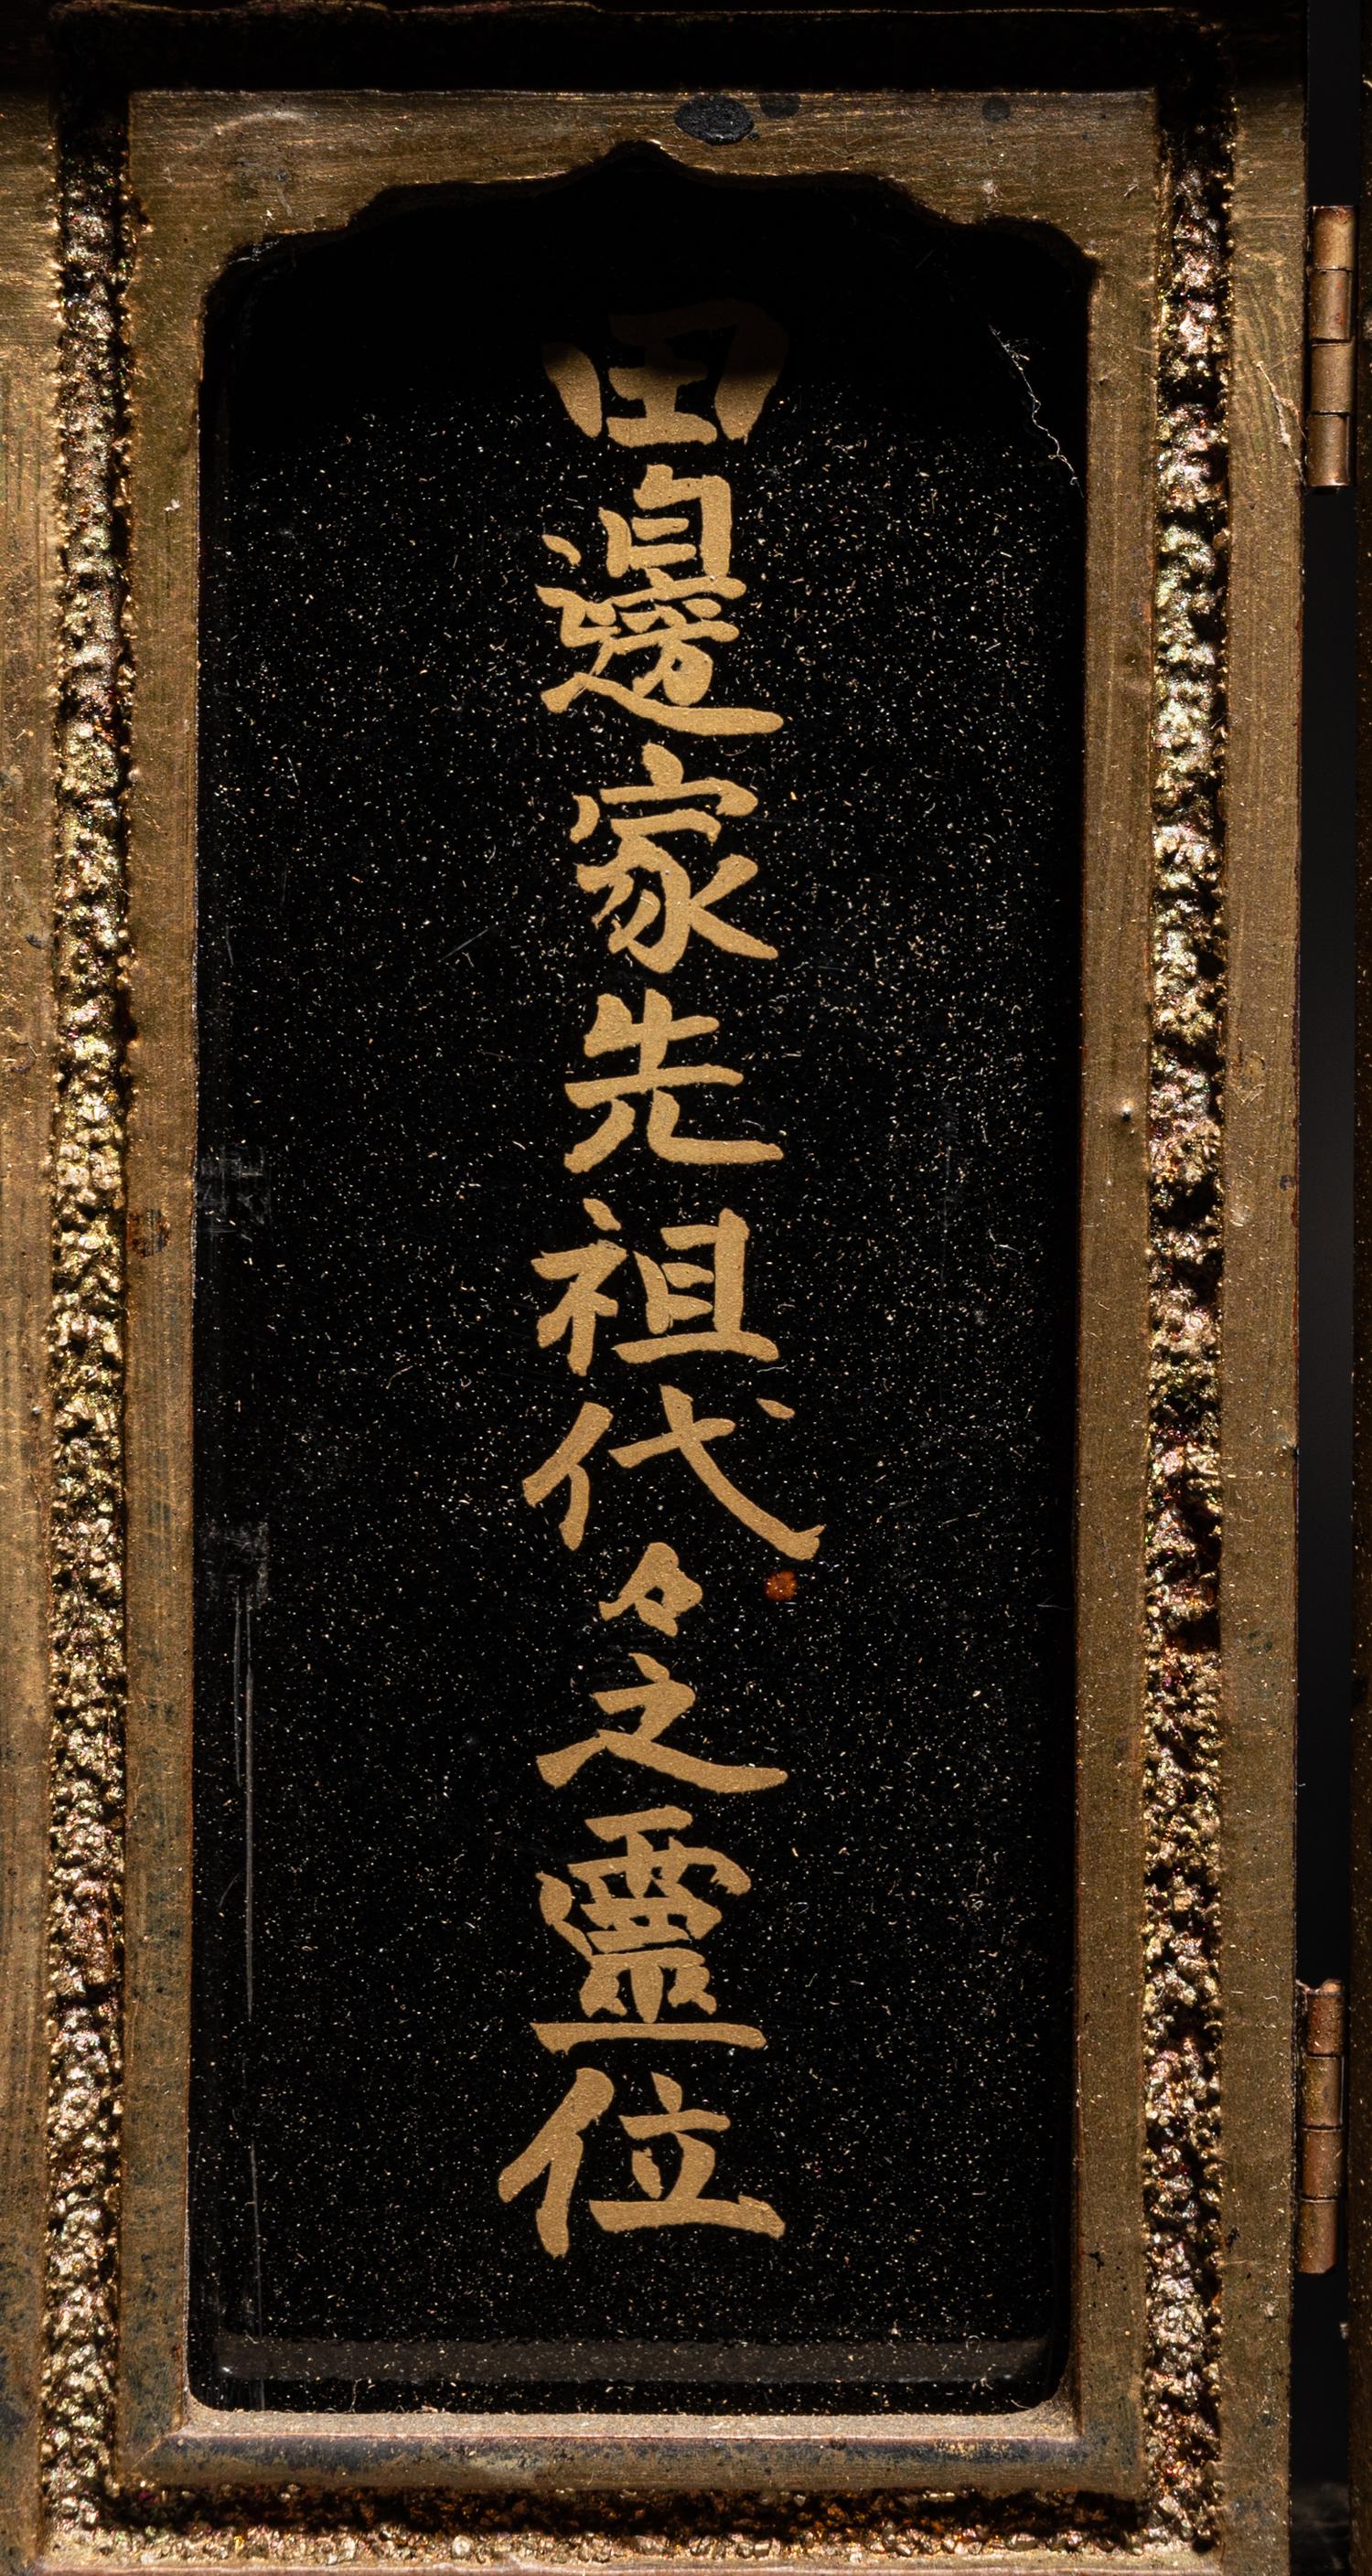 田邊家先祖代々之靈位